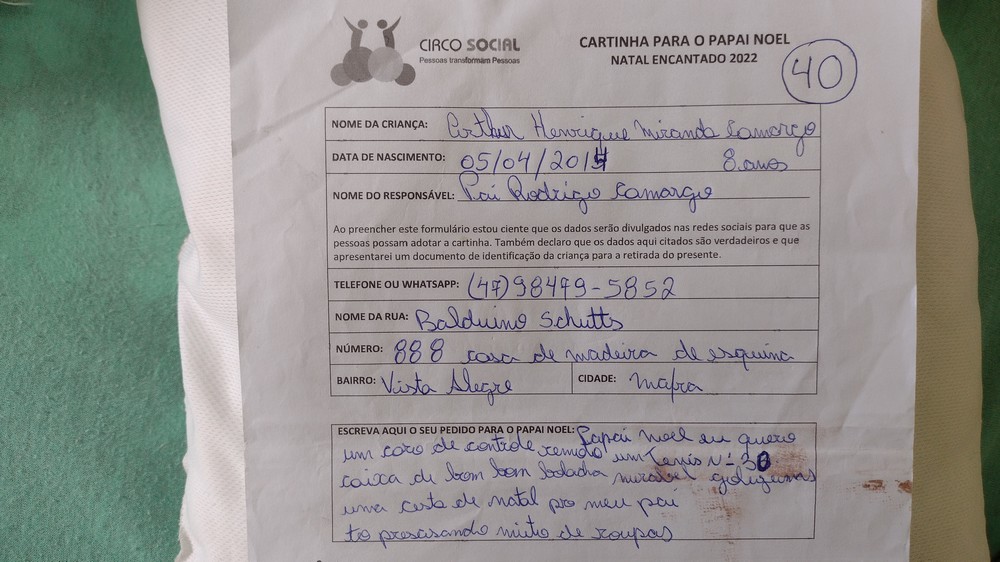 CIRCO SOCIAL
Pessoas transformam Pessoas
CARTINHA PARA O PAPAI NOEL
NATAL ENCANTADO 2022
40
NOME DA CRIANÇA: Arthur Henrique Miranda Camargo
DATA DE NASCIMENTO: 05/04/2014 8 anos
NOME DO RESPONSÁVEL: Pai Rodrigo Camargo
Ao preencher este formulário estou ciente que os dados serão divulgados nas redes sociais para que as
pessoas possam adotar a cartinha. Também declaro que os dados aqui citados são verdadeiros e que
apresentarei um documento de identificação da criança para a retirada do presente.
TELEFONE OU WHATSAPP: (47)98479-5852
NOME DA RUA: Balduino Schutts
NÚMERO: 888 casa de madeira de esquina
BAIRRO: Vista Alegre CIDADE: Mafra
ESCREVA AQUI O SEU PEDIDO PARA O PAPAI NOEL: Papai noel eu quero
um caro de controle remoto um Tenis Nº 30
caixa de bom bom bolacha mirabel
uma cesta de natal pro meu pai
to presasando muito de roupas